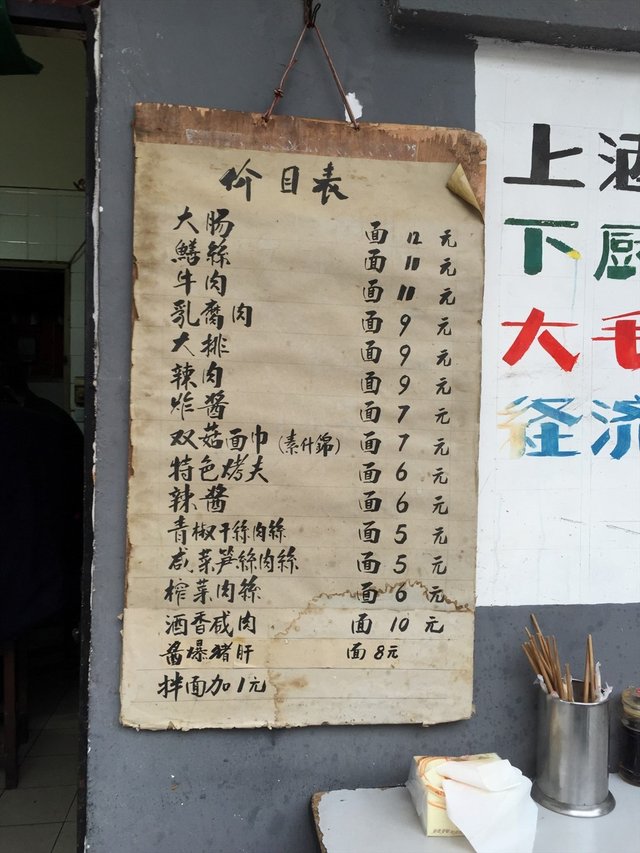 价目表
大肠 面 12 元
鱔絲 面 11 元
牛肉 面 11 元
乳腐肉 面 9 元
大排 面 9 元
辣肉 面 9 元
炸醬 面 7 元
双菇面巾(素什錦) 面 7 元
特色烤夫 面 6 元
辣醬 面 6 元
青椒干絲肉絲 面 5 元
咸菜笋絲肉絲 面 5 元
榨菜肉絲 面 6 元
酒香咸肉 面 10 元
醬爆猪肝 面 8元
拌面加1元
上
下厨
大毛
径济